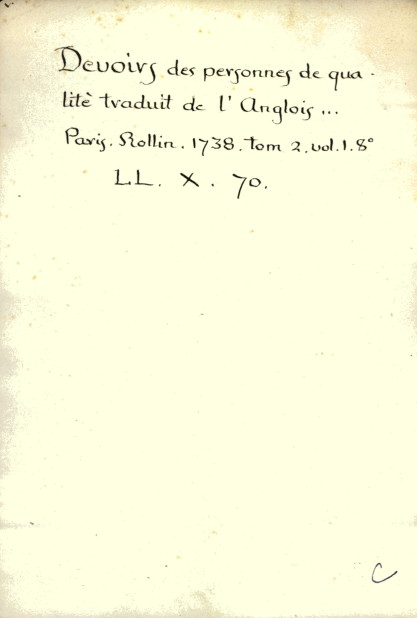 Devoirs des personnes de qua-
litè traduit de l' Anglois ...
Paris. Rollin. 1738. tom 2. vol. 1. 8°
LL. X. 70.
C